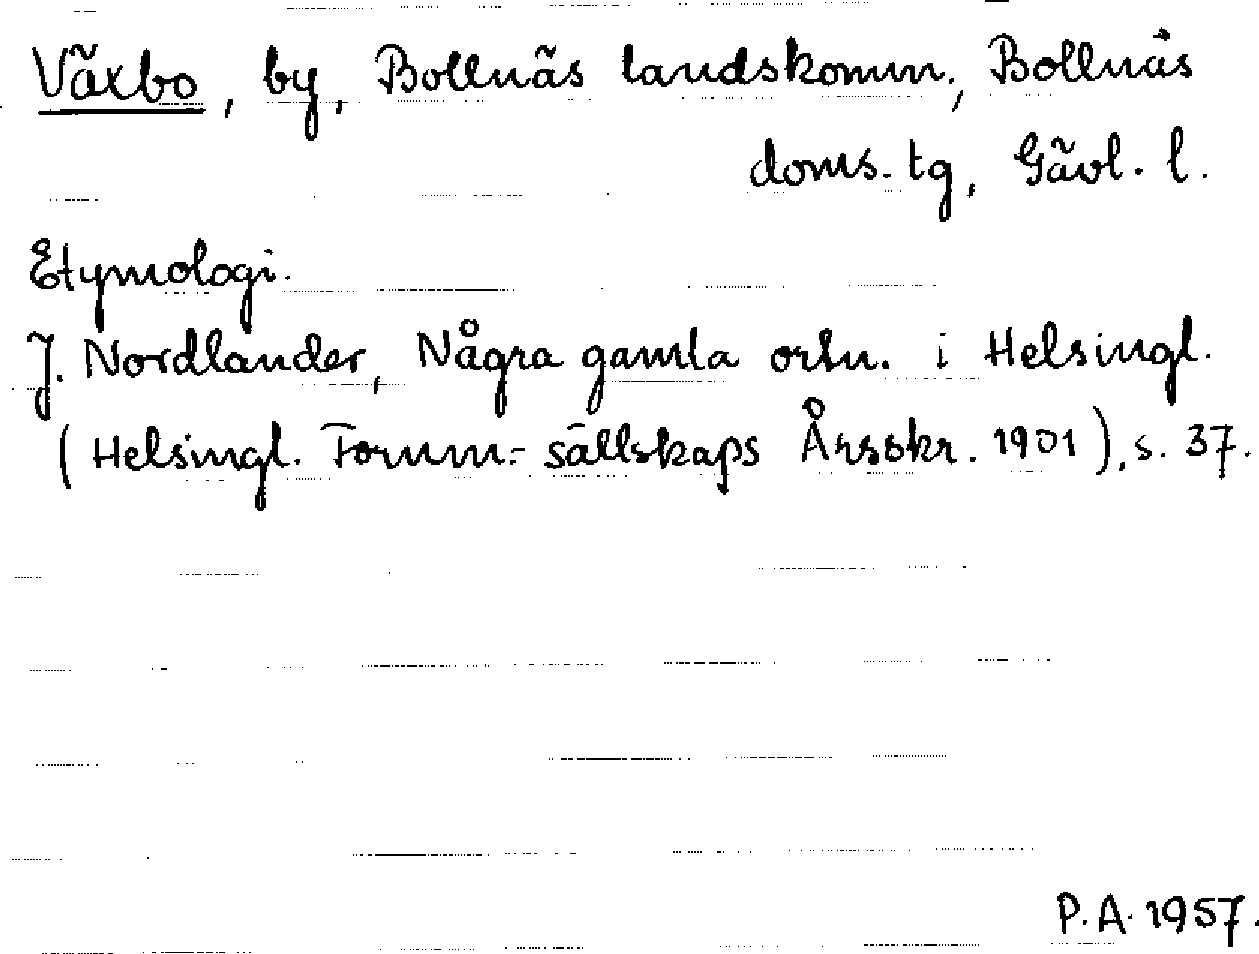 Växbo, by, Bollnäs landskomm., Bollnäs
doms. tg, Gävl. l.
Etymologi.
J. Nordlander, Några gamla ortn. i Helsingl.
(Helsingl. Fornm.-sällskaps Årsskr. 1901), s. 37.
P. A. 1957.